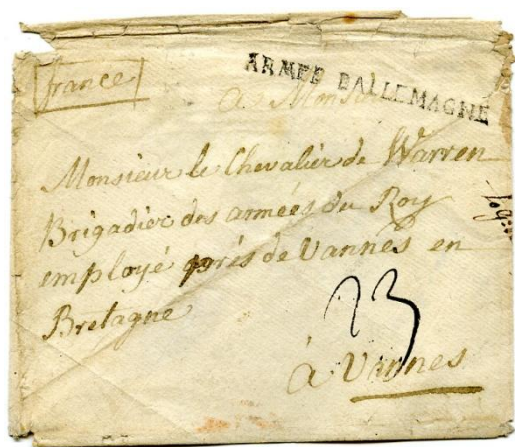 france
ARMEE D'ALLEMAGNE
a Monsieur
Monsieur le Chevalier de Warren
Brigadier des armées du Roy
employé prés de Vannes en
Bretagne
23
à Vannes